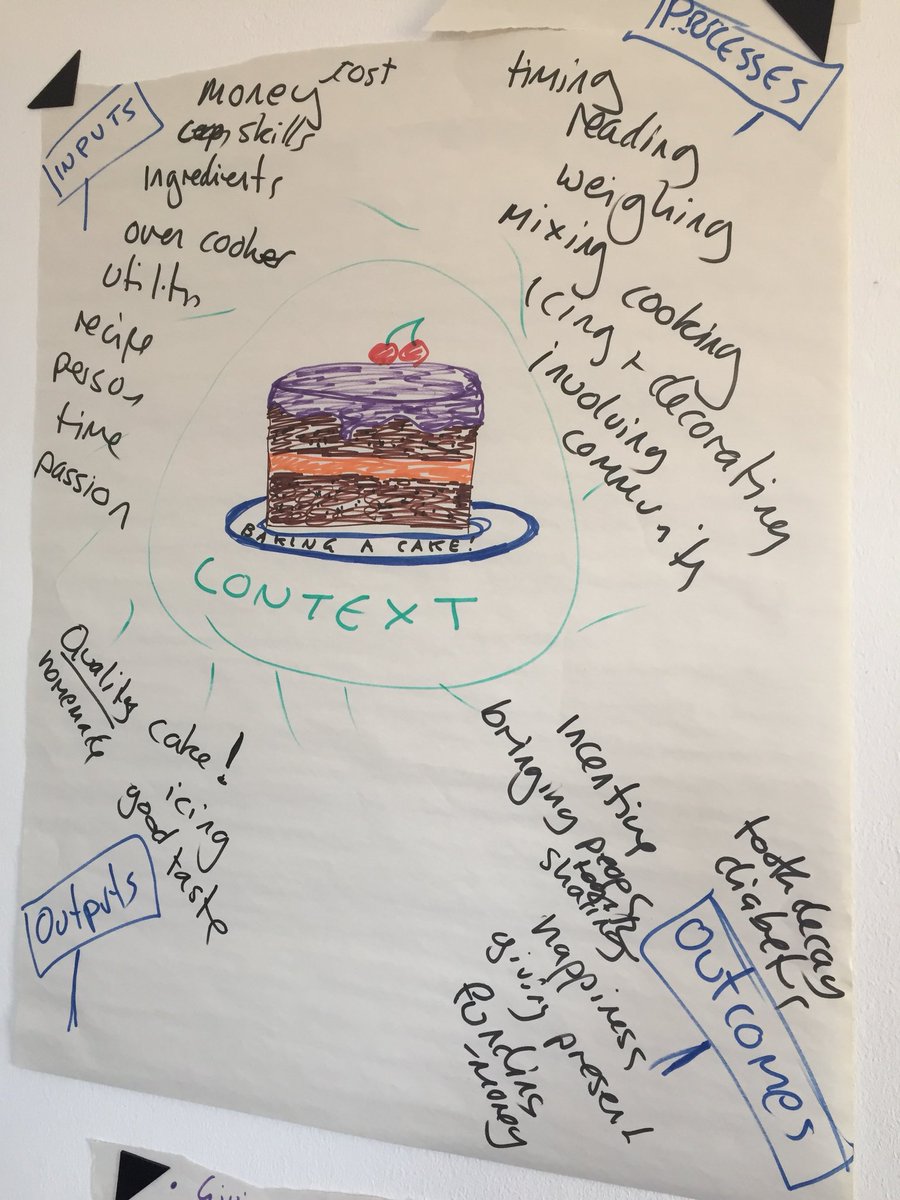 INPUTS
money cost
skills
Ingredients
oven cooker
utility
recipe
person
time
passion
PROCESSES
timing
reading
weighing
mixing
cooking
Icing + decorating
involving
community
BAKING A CAKE!
CONTEXT
Quality cake!
homemade
icing
good taste
Outputs
Incentive
bringing people
sharing
happiness
giving present
funding
-money
tooth decay
diabetes
OUTCOMES